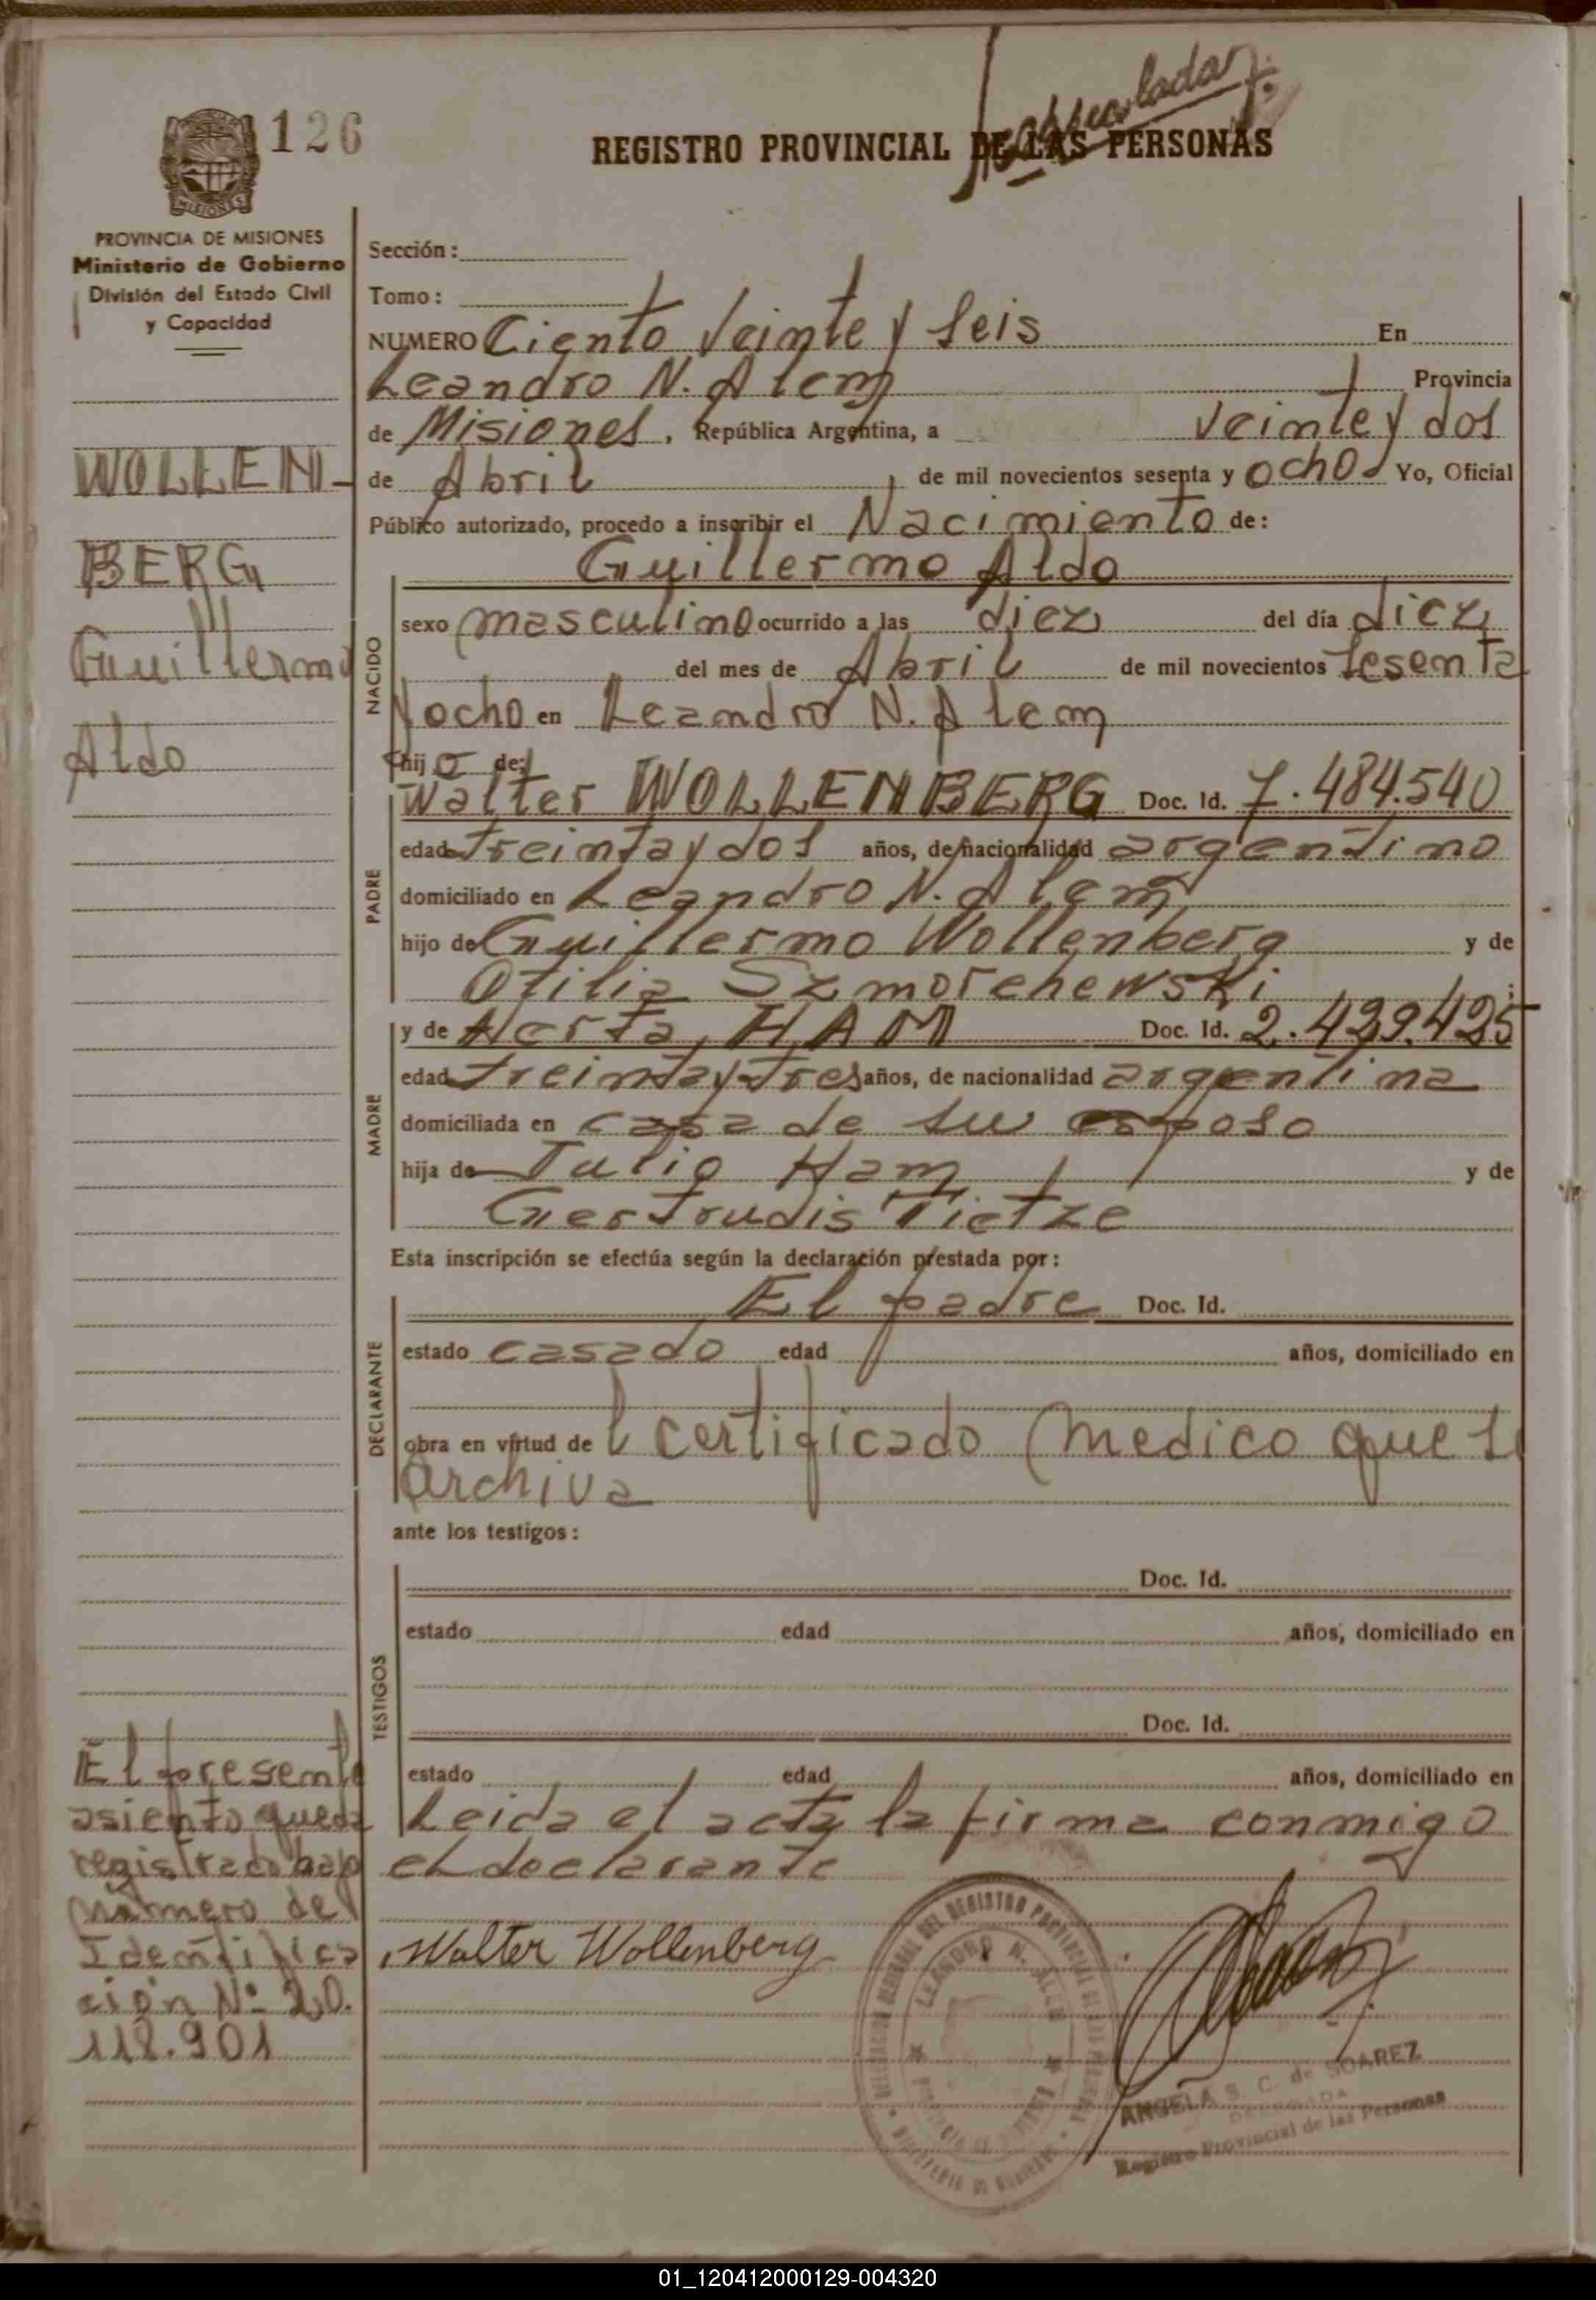 126
REGISTRO PROVINCIAL DE LAS PERSONAS
MISIONES
PROVINCIA DE MISIONES
Ministerio de Gobierno
División del Estado Civil
y Capacidad
WOLLEN-
BERG
Guillermo
Aldo
Sección:
Tomo:
NUMERO Ciento Veinte y Seis En
Leandro N. Alem Provincia
de Misiones, República Argentina, a veinte y dos
de Abril, de mil novecientos sesenta y ocho Yo, Oficial
Público autorizado, procedo a inscribir el Nacimiento de:
NACIDO
Guillermo Aldo
sexo masculino ocurrido a las diez del día diez
del mes de Abril de mil novecientos Sesenta
y ocho en Leandro N. Alem
hijo de:
PADRE
Walter WOLLENBERG Doc. Id. 7.484.540
edad treinta y dos años, de nacionalidad argentino
domiciliado en Leandro N. Alem
hijo de Guillermo Wollenberg y de
Otilia Szmorehewski
MADRE
y de Herta HAM Doc. Id. 2.429.425
edad treinta y tres años, de nacionalidad argentina
domiciliada en casa de su esposo
hija de Julio Ham y de
Gertrudis Tietze
Esta inscripción se efectúa según la declaración prestada por:
DECLARANTE
El padre Doc. Id.
estado casado edad años, domiciliado en
obra en virtud del certificado medico que se
archiva
ante los testigos:
TESTIGOS
Doc. Id.
estado edad años, domiciliado en
Doc. Id.
estado edad años, domiciliado en
Leida el acta la firma conmigo
el declarante
Walter Wollenberg
El presente
asiento queda
registrado bajo
número de
Identifica
ción Nº 20.
118.901
DEL REGISTRO PROVINCIAL DE LAS PERSONAS
LEANDRO N. ALEM
ANGELA S. C. de SUAREZ
DELEGADA
Registro Provincial de las Personas
01_120412000129-004320